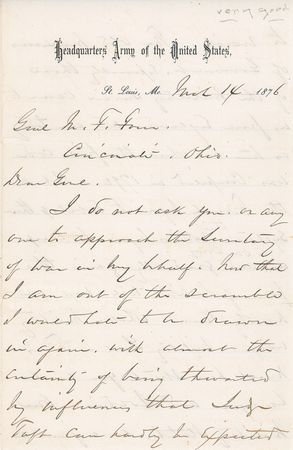 very good
Headquarters Army of the United States,
St. Louis, Mo. Mch 14 1876
Genl M. F. Force.
Cincinnati. Ohio.
Dear Genl.
I do not ask you or any
one to approach the Secretary
of War in my behalf. Now that
I am out of the scramble
I would hate to be drawn
in again. with almost the
certainty of being thwarted
by influences that Judge
Taft can hardly be expected